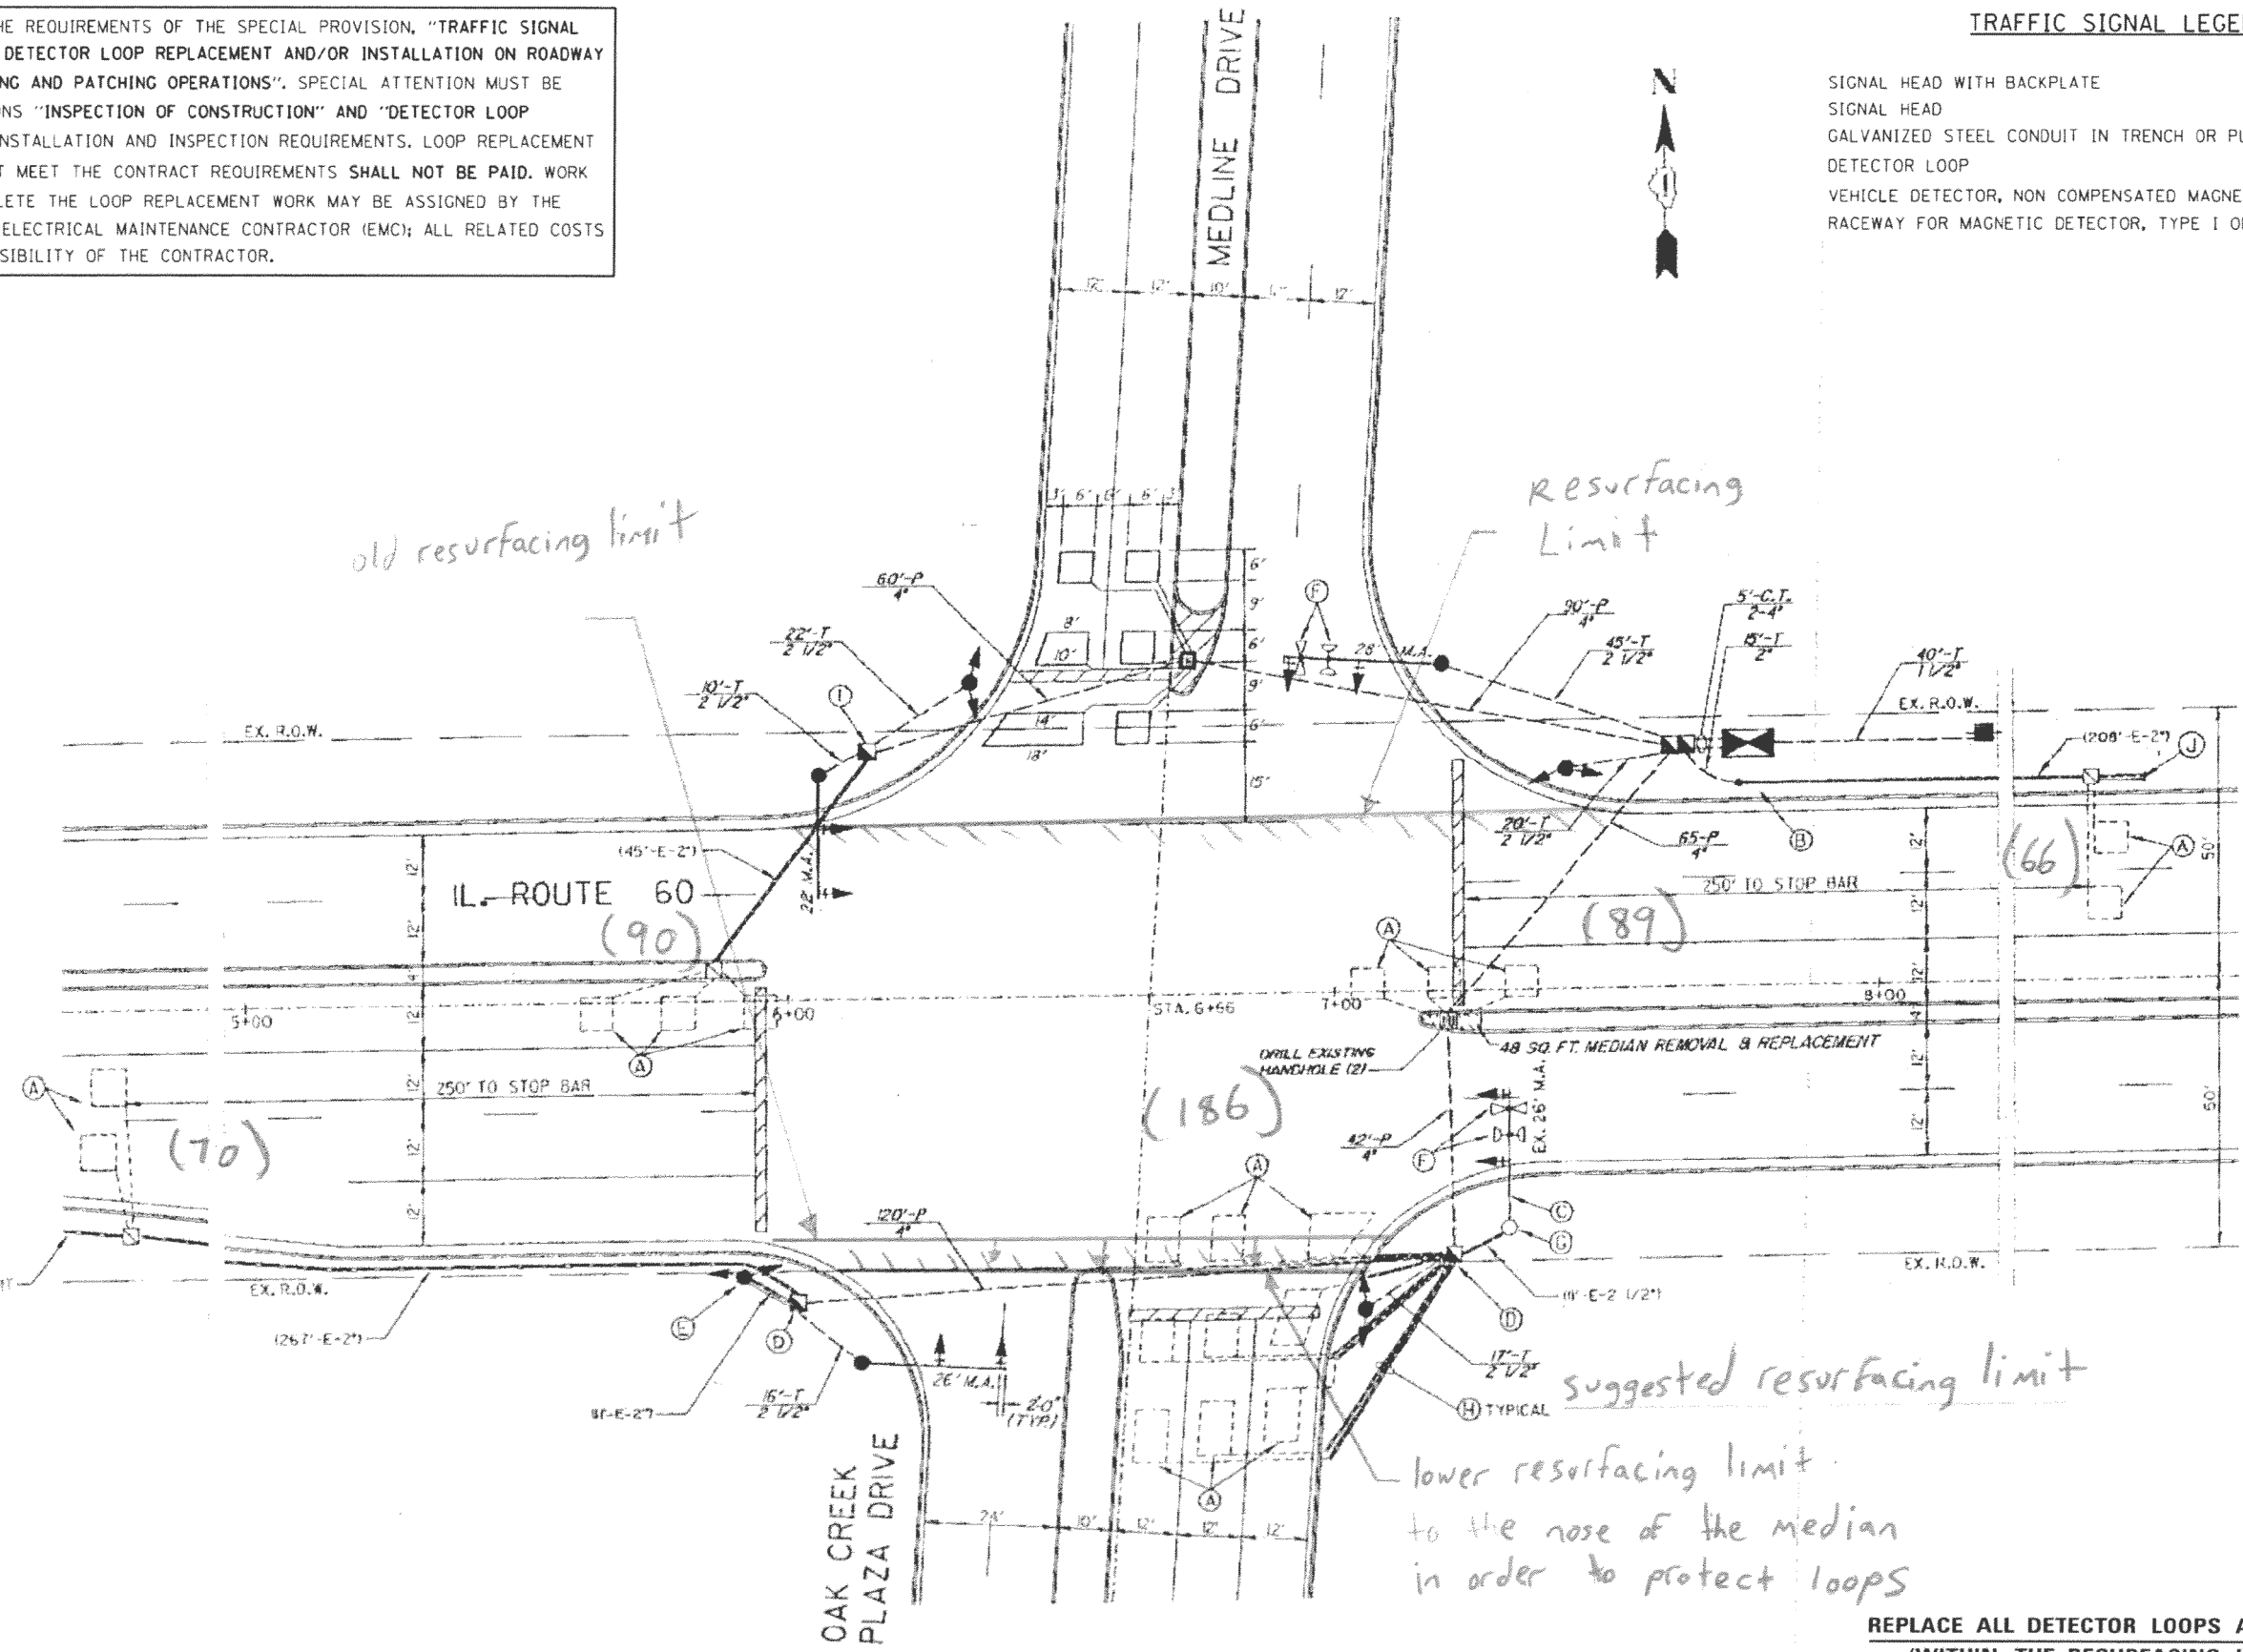 HE REQUIREMENTS OF THE SPECIAL PROVISION, "TRAFFIC SIGNAL
DETECTOR LOOP REPLACEMENT AND/OR INSTALLATION ON ROADWAY
NG AND PATCHING OPERATIONS". SPECIAL ATTENTION MUST BE
NS "INSPECTION OF CONSTRUCTION" AND "DETECTOR LOOP
NSTALLATION AND INSPECTION REQUIREMENTS. LOOP REPLACEMENT
T MEET THE CONTRACT REQUIREMENTS SHALL NOT BE PAID. WORK
LETE THE LOOP REPLACEMENT WORK MAY BE ASSIGNED BY THE
ELECTRICAL MAINTENANCE CONTRACTOR (EMC); ALL RELATED COSTS
SIBILITY OF THE CONTRACTOR.
TRAFFIC SIGNAL LEGE
N
SIGNAL HEAD WITH BACKPLATE
SIGNAL HEAD
GALVANIZED STEEL CONDUIT IN TRENCH OR PU
DETECTOR LOOP
VEHICLE DETECTOR, NON COMPENSATED MAGNE
RACEWAY FOR MAGNETIC DETECTOR, TYPE I O
MEDLINE DRIVE
12' 12' 10' 12'
3' 6' 6' 6' 3'
old resurfacing limit
Resurfacing
Limit
60'-P
4"
22'-T
2 1/2"
10'-T
2 1/2"
I
8'
10'
14'
18'
6'
9'
6'
9'
6'
15'
F
26' M.A.
90'-P
4"
45'-T
2 1/2"
5'-C.T.
2-4"
15'-T
2"
40'-T
1 1/2"
EX. R.O.W.
EX. R.O.W.
(208'-E-2") J
(45'-E-2")
22' M.A.
IL. ROUTE 60
(90)
20'-T
2 1/2"
65-P
4"
B
250' TO STOP BAR
(89)
(66)
A
A
50'
12' 12' 4' 12' 12' 12'
12' 12' 12' 4' 12' 12'
5+00
6+00
STA. 6+56
7+00
8+00
A
A
250' TO STOP BAR
(70)
DRILL EXISTING
HANDHOLE (2)
48 SQ. FT. MEDIAN REMOVAL & REPLACEMENT
(186)
42'-P
4"
EX. 26' M.A.
F
50'
120'-P
4"
A
C
G
EX. R.O.W.
EX. R.O.W.
(267'-E-2")
E
D
D
16'-T
2 1/2"
26' M.A.
2'-0"
(TYP.)
17'-T
2 1/2"
H TYPICAL
suggested resurfacing limit
OAK CREEK
PLAZA DRIVE
A
24' 10' 12' 12' 12'
lower resurfacing limit
to the nose of the median
in order to protect loops
REPLACE ALL DETECTOR LOOPS A